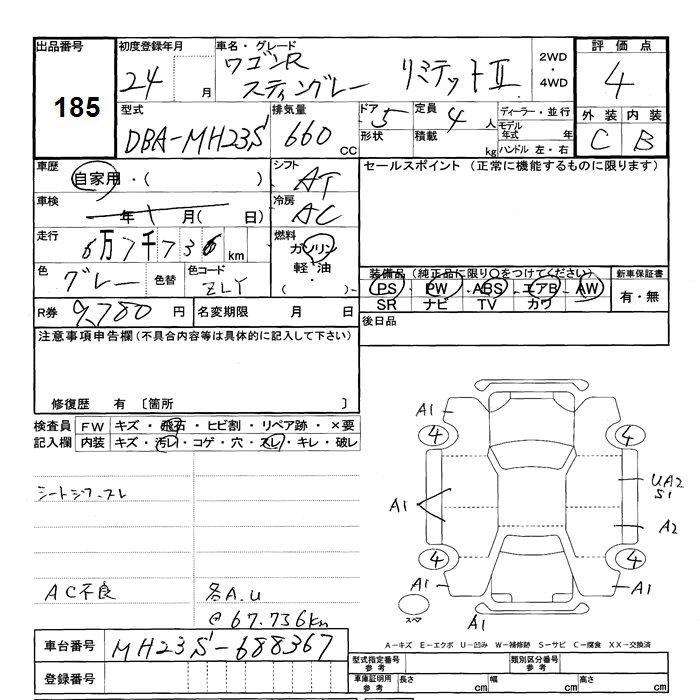 出品番号 初度登録年月 車名・グレード 2WD ・ 4WD 評価点
185 24 月 ワゴンR スティングレー リミテットⅡ 4
型式 排気量 ドア 定員 ディーラー・並行 外装 内装
DBA-MH23S 660 CC 5 4 人 モデル年式 年 C B
形状 積載 kg ハンドル 左・右
車歴 自家用・( ) シフト AT セールスポイント (正常に機能するものに限ります)
車検 年 月( 日) 冷房 AC
走行 6万7千736 km 燃料 ガソリン・軽油・( )
色 グレー 色替 色コード ZLY
装備品 (純正品に限り○をつけてください) 新車保証書
PS PW ABS エアB AW 有・無
SR ナビ TV カワ
R券 9,780 円 名変期限 月 日 後日品
注意事項申告欄(不具合内容等は具体的に記入して下さい)
修復歴 有 〔箇所 〕
検査員 FW キズ・飛石・ヒビ割・リペア跡・×要
記入欄 内装 キズ・汚レ・コゲ・穴・スレ・キレ・破レ
AC不良 各A.U
@67.736km
A1
4 4
UA2
S1
A1
A2
4 4
A1 A1
スペア A1
A-キズ E-エクボ U-凹み W-補修跡 S-サビ C-腐食 XX-交換済
車台番号 MH23S-688367
登録番号
型式指定番号 参考 類別区分番号 参考
車庫証明用 参考 長さ cm 幅 cm 高さ cm